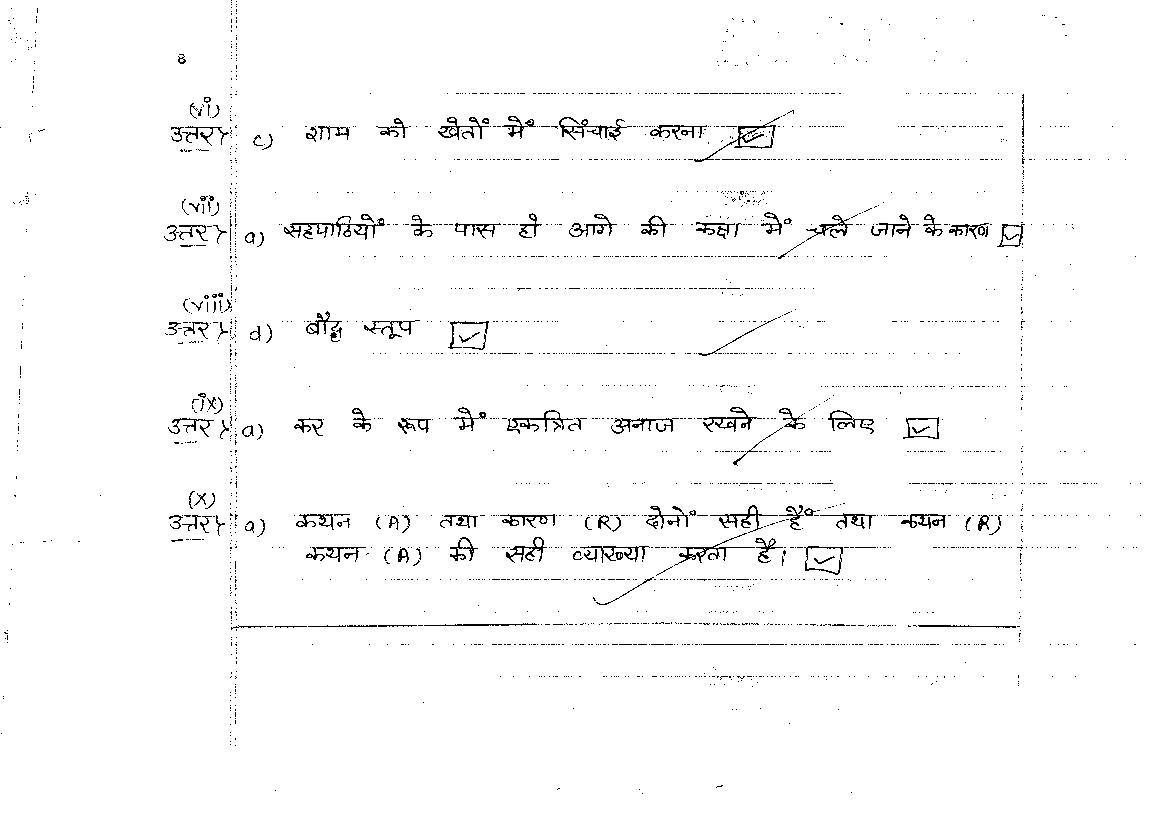 8
(vi)
उत्तर> c) शाम को खेतों में सिंचाई करना
(vii)
उत्तर> a) सहपाठियों के पास हो आगे की कक्षा में चले जाने के कारण
(viii)
उत्तर> d) बौद्ध स्तूप
(ix)
उत्तर> a) कर के रूप में एकत्रित अनाज रखने के लिए
(x)
उत्तर> a) कथन (A) तथा कारण (R) दोनों सही हैं तथा कथन (R)
कथन (A) की सही व्याख्या करता है।